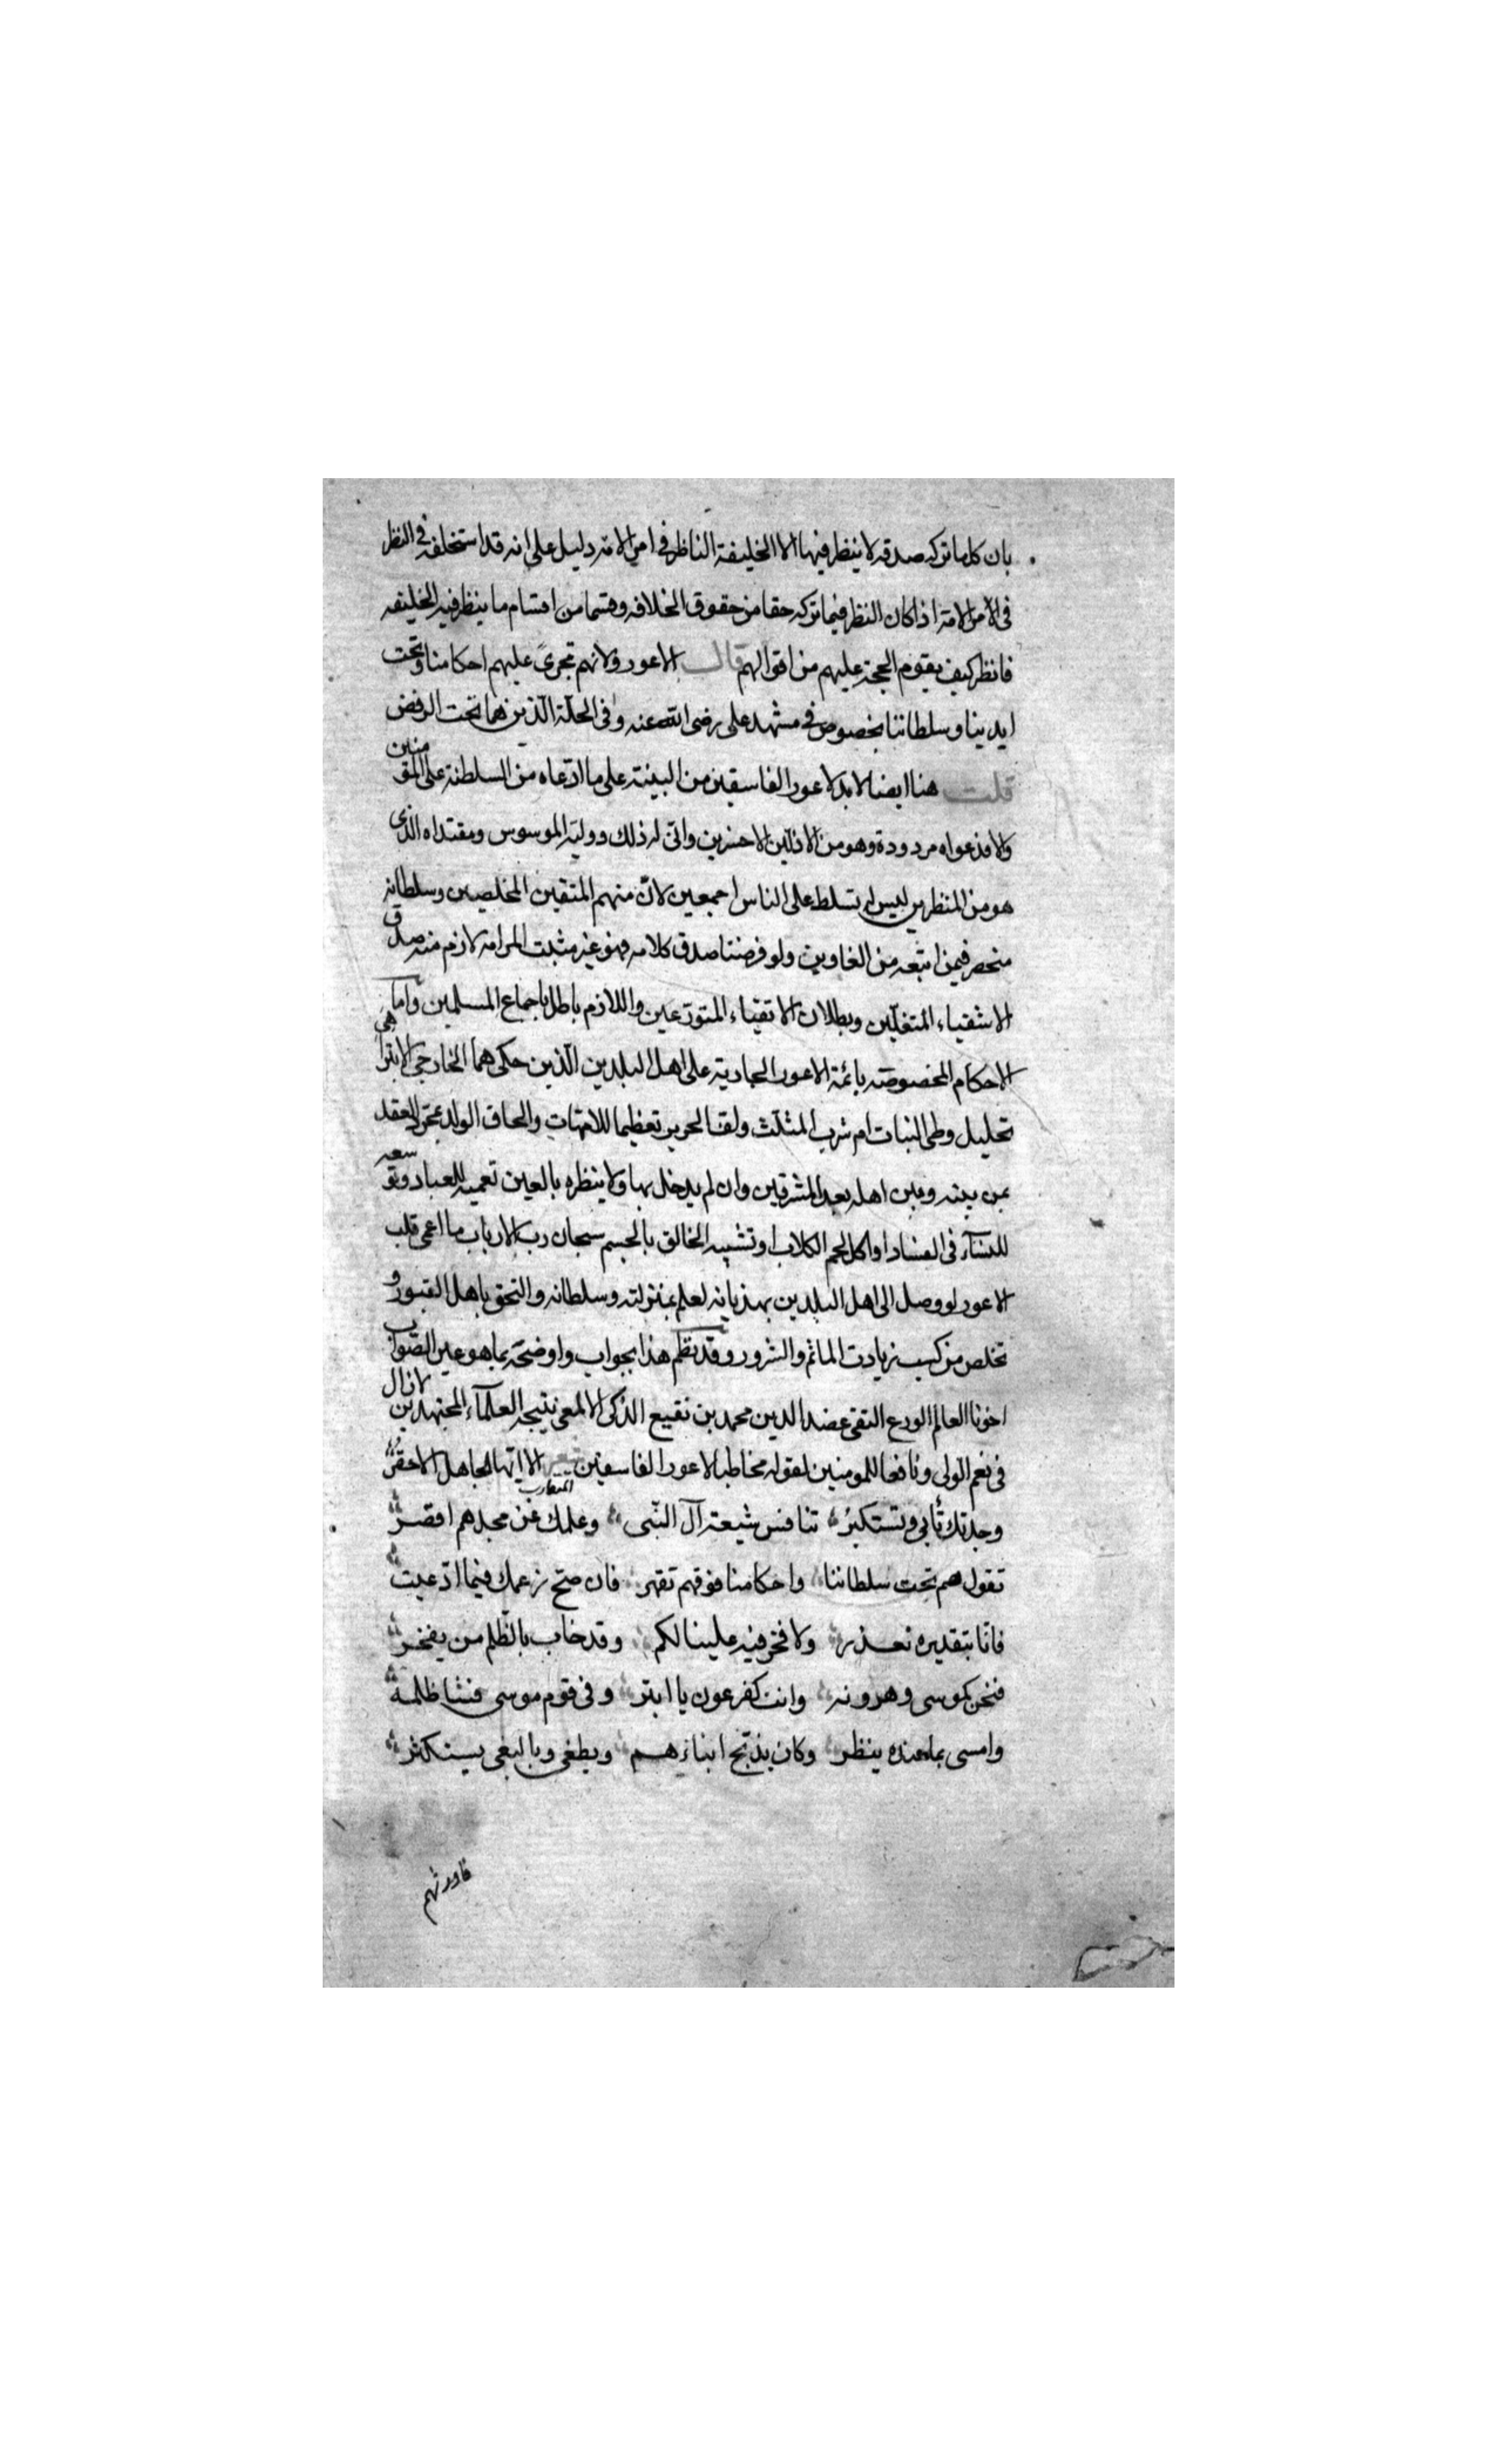 بان كلما تركه صدقه لا ينظر فيها الا الخليفة الناظر في امر الامة دليل على انه قد استخلفه في النظر
في الامر الامة اذا كان النظر فيما تركه حقا من حقوق الخلافه وقسما من اقسام ما ينظر فيه الخليفه
فانظر كيف يقوم الحجة عليهم من اقوالهم قال الاعور ولانهم تجرى عليهم احكامنا وتحت
ايدينا وسلطاننا بخصوص في مشهد على رضى الله عنه وفى الحلة الذين هما تحت الرفض
قلت هنا ايضا لا بد لاعور الفاسقين من البينة على ما ادعاه من السلطنة على المؤمنين
والا فدعواه مردودة وهو من الاذلين الاخسرين وانى له ذلك ووليه الموسوس ومقتداه الذى
هو من المنظرين ليس له تسلط على الناس اجمعين لان منهم المتقين المخلصين وسلطانه
منحصر فيمن اتبعه من الغاوين ولو فرضنا صدق كلامه فهو غير مثبت المرامه لازم منه صدق
الاشقياء المتغلبين وبطلان الاتقياء المتورعين واللازم باطل باجماع المسلمين واما
الاحكام المخصوصة بائمة الاعور الجارية على اهل البلدين الذين حكى هما الخارجى الابتر اهى
تحليل وطى البنات ام شرب المثلث ولف الحرير تعظيما للامهات والحاق الولد بمجرد العقد
بمن بينه وبين اهله بعد المشرقين وان لم يدخل بها ولا ينظره بالعين تعميه للعباد وتوسعه
للنساء في الفساد او اكل لحم الكلاب او تشبيه الخالق بالجسم سبحان رب الارباب ما اعمى قلب
الاعور لو وصل الى اهل البلدين بهذيانه لعلم بمنزلته وسلطانه والتحق باهل القبور و
تخلص من كسب زيادت الماثم والشرور وقد نظم هذا بجواب واوضحه بما هو عين الصواب
اخونا العالم الورع التقى عضد الدين محمد بن نفيع الذكى الالمعى نتيجه العلماء المجتهدين لا زال
في نعم المولى ونافعا للمومنين لقوله مخاطبا لاعور الفاسقين شعر الا ايها الجاهل الاحقر
المتقارب
وجدتك تأبى وتستكبر تنافس شيعة آل النبى وعلمك عن مجدهم اقصر
تقول هم تحت سلطاننا واحكامنا فوقهم تقهر فان صح زعمك فيما ادعيت
فانا بتقديره نعذر ولا فخر فيه علينا لكم وقد خاب بالظلم من يفخر
فنحن كموسى وهرونه وانت كفرعون يا ابتر وفى قوم موسى فشا ظلمه
وامسى بما عنده ينظر وكان يذبح ابناءهم ويطغى وبالبغى يستكثر
فاورثهم